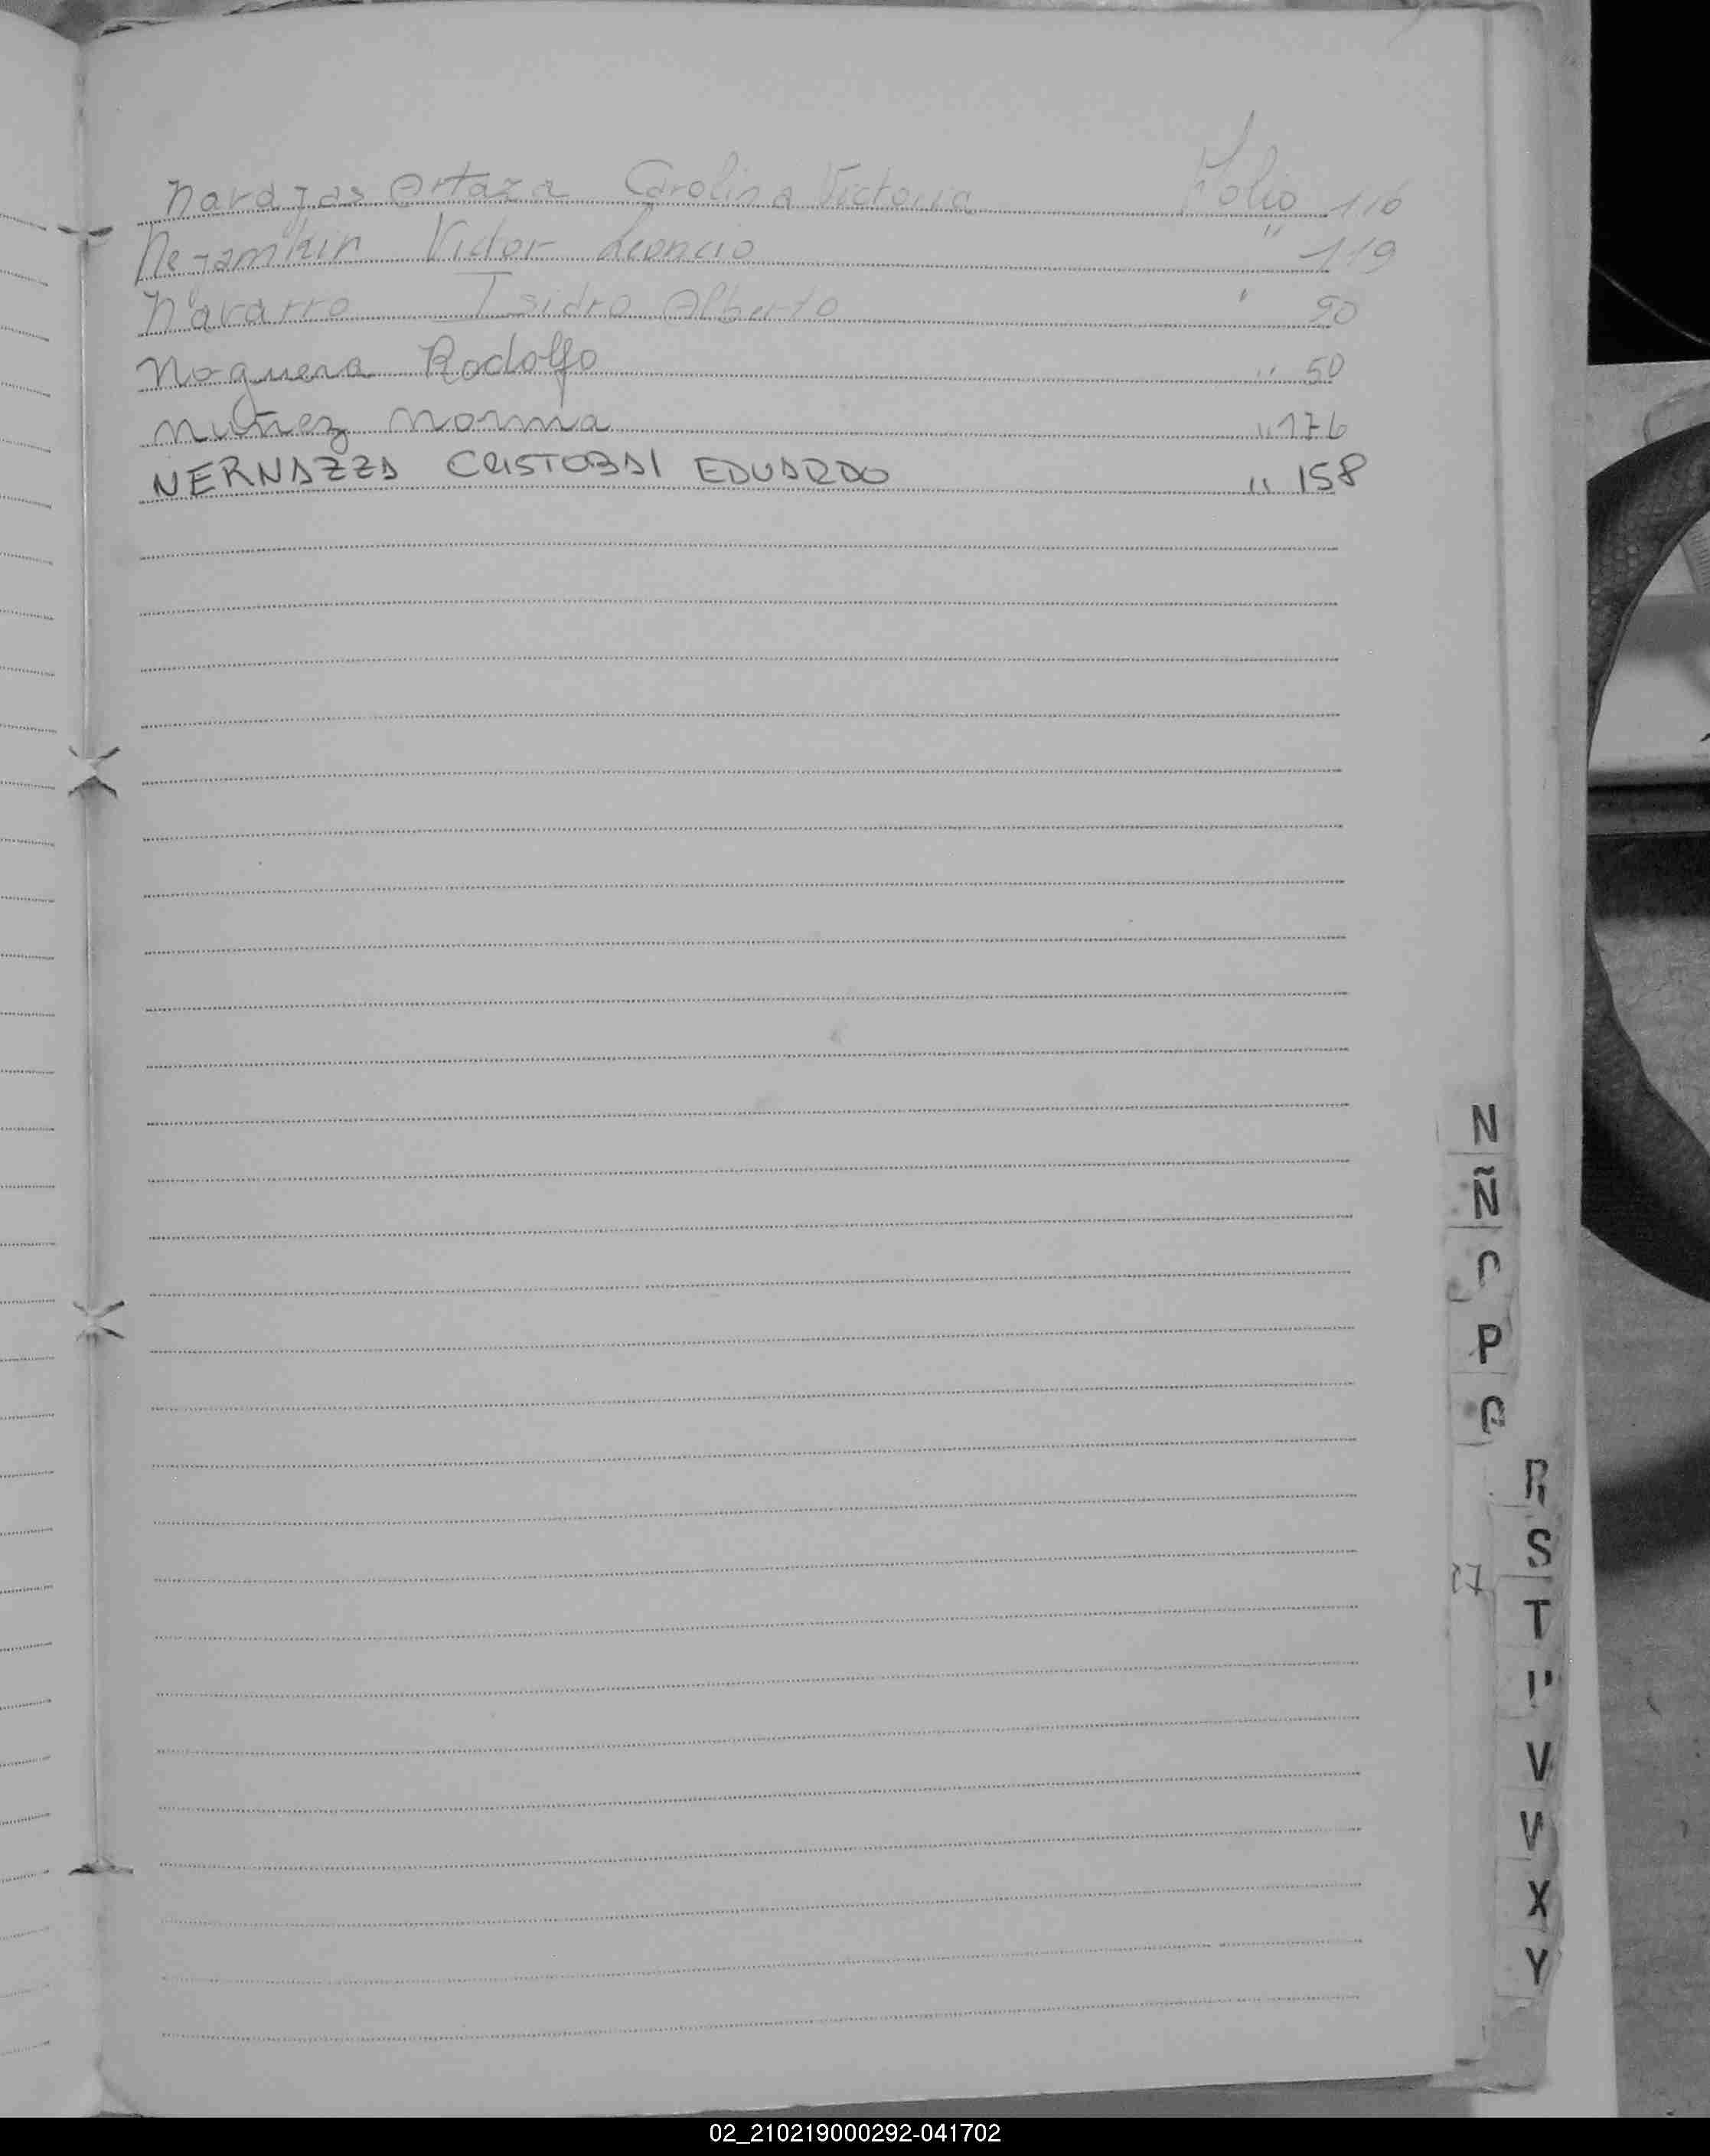 Navajas Ortaza Carolina Victoria Folio 116
Nejamkin Victor Leoncio " 119
Navarro Isidro Alberto " 90
Noguera Rodolfo " 50
Nuñez Norma " 176
NERNAZZA CRISTOBAL EDUARDO " 158
N
Ñ
P
R
S
27
T
V
W
X
Y
02_210219000292-041702